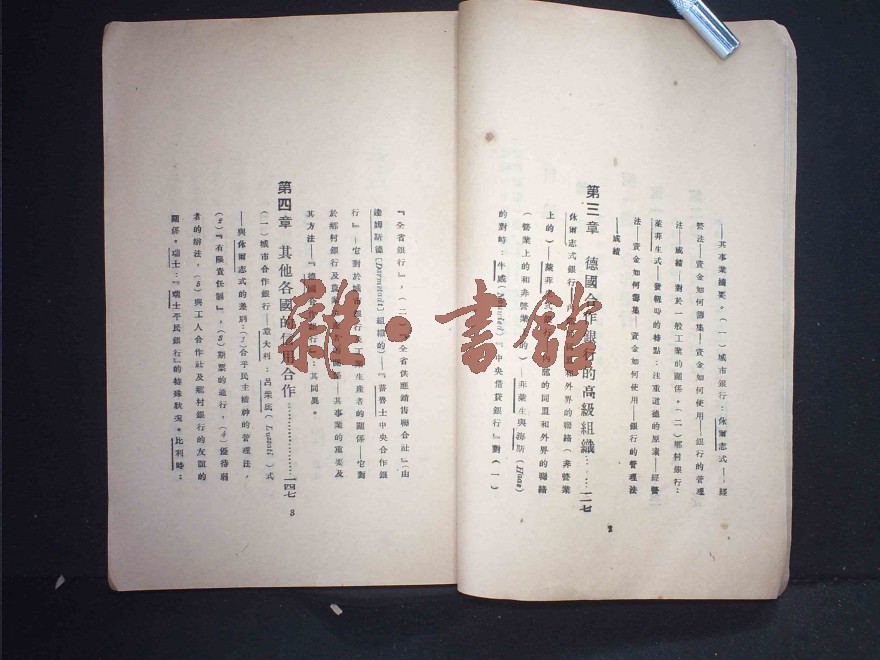 ——其事業綱要。(一)城市銀行:休爾志式——經
營法——資金如何籌集——資金如何使用——銀行的管理
法——成績——對於一般工業的關係。(二)鄉村銀行:
萊非生式——發軔時的特點:注重道德的原素——經營
法——資金如何籌集——資金如何使用——銀行的管理法
——成績
第三章 德國合作銀行的高級組織……一二七
休爾志式銀行 和外界的聯絡(非營業
上的)——萊非 內部的同盟和外界的聯絡
(營業上的和非營業的)——非萊生與海斯(Haas)
的對峙:牛威(Neuwied)『中央借貸銀行』對(一)
2
『全省銀行』,(二)『全省供應銷售聯合社』(由
達姆斯德(Darmstadt)組織的)——『普魯士中央合作銀
行』——它對於城市銀行及工業生產者的關係——它對
於鄉村銀行及農業 者的關係——其事業的重要及
其方法——『德國合作銀行』:其同異。
第四章 其他各國的信用合作……一四七
(一)城市合作銀行——意大利:呂柴底(Luzzatti)式
——與休爾志式的差別:(1)合乎民主精神的管理法,
(2)『有限責任制』,(3)期票的通行,(4)優待弱
者的辦法,(5)與工人合作社及鄉村銀行的友誼的
關係。瑞士:『瑞士平民銀行』的特殊狀況。比利時:
3
雜·書館